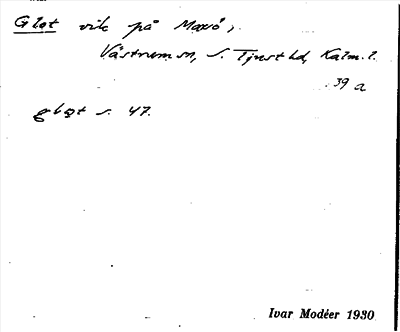 Glot vik på Maxö,
Västrum sn, S. Tjust hd, Kalm. l.
39 a
glot s. 47.
Ivar Modéer 1930